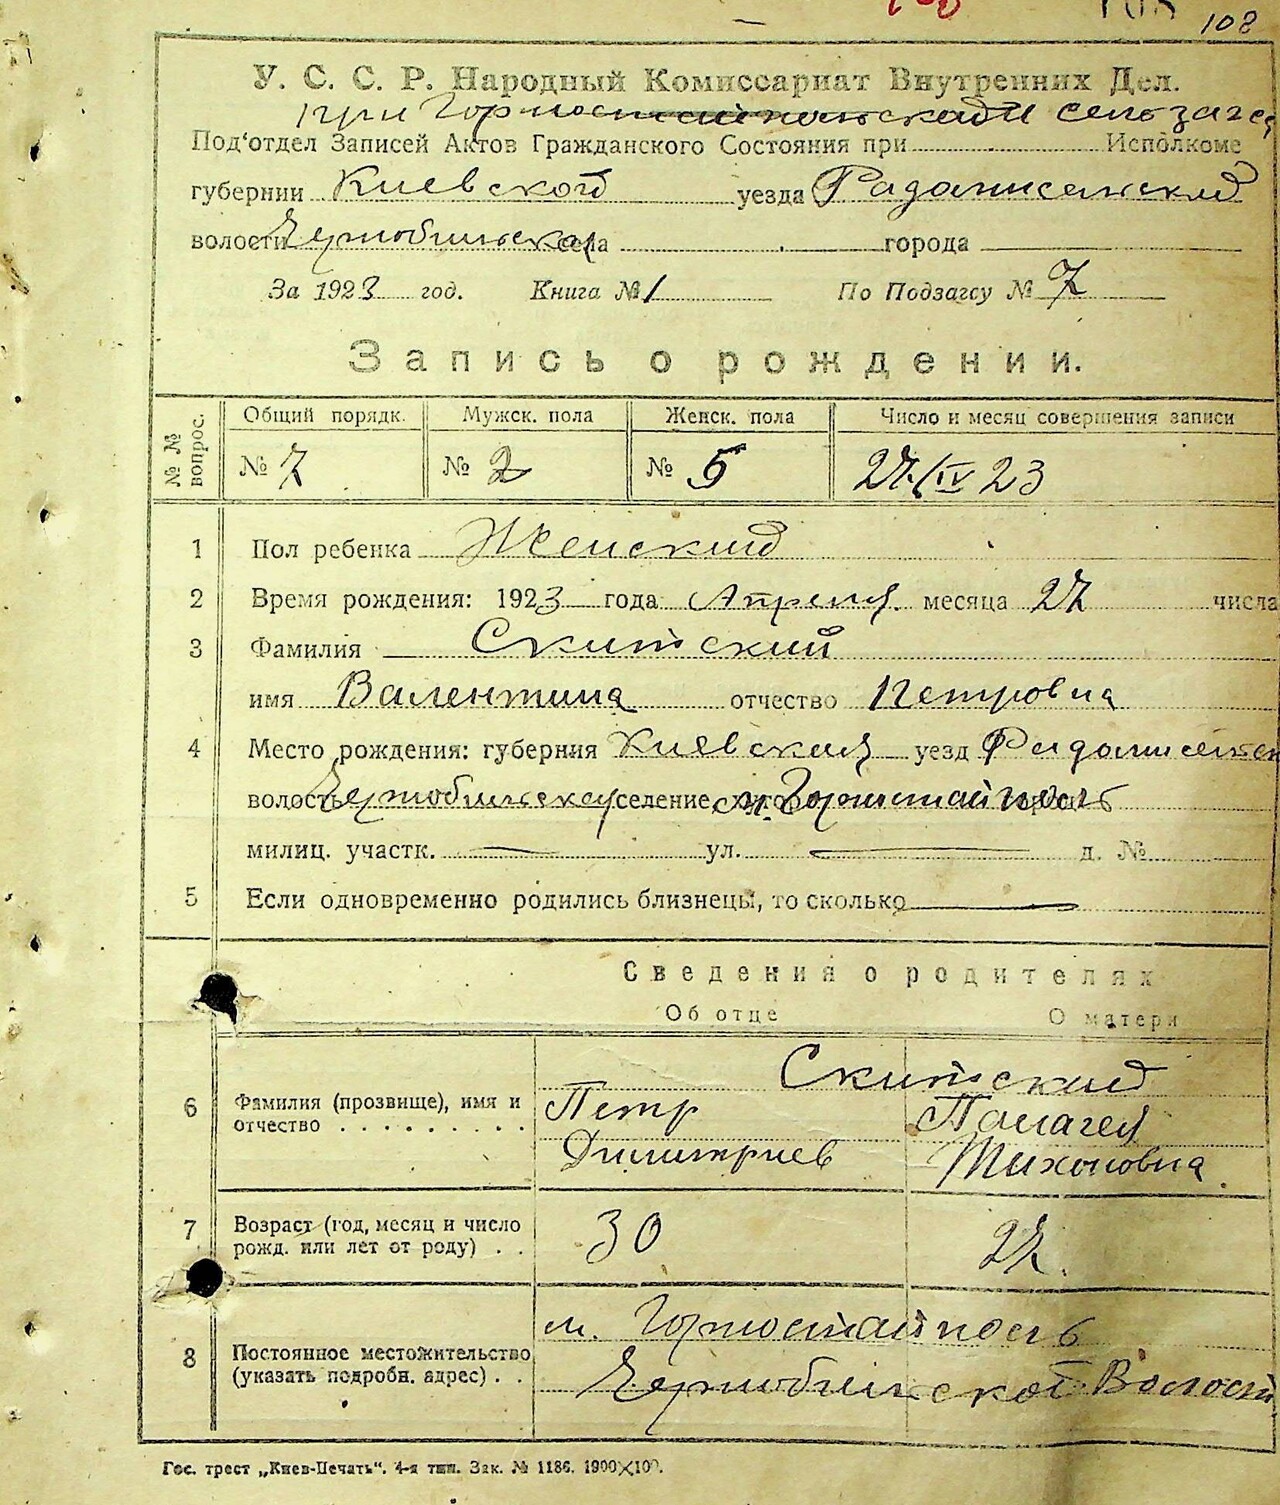 108
У. С. С. Р. Народный Комиссариат Внутренних Дел.
при Горностайпольской сельзагсе
Под'отдел Записей Актов Гражданского Состояния при Исполкоме
губернии Киевской уезда Радомисельский
волости Чернобильской села города
За 1923 год. Книга № 1 По Подзагсу № 7
Запись о рождении.
№ № вопрос. Общий порядк. Мужск. пола Женск. пола Число и месяц совершения записи
№ 7 № 2 № 5 27/IV 23
1 Пол ребенка Женский
2 Время рождения: 1923 года Апреля месяца 27 числа
3 Фамилия Скитский
имя Валентина отчество Петровна
4 Место рождения: губерния Киевская уезд Радомисельск
волость Чернобильская селение, м. Горностайполь
милиц. участк. ул. д. №
5 Если одновременно родились близнецы, то сколько
Сведения о родителях
Об отце О матери
Скитский
6 Фамилия (прозвище), имя и отчество Петр Димитриев Палагея Тихоновна
7 Возраст (год, месяц и число рожд. или лет от роду) 30 27.
8 Постоянное местожительство (указать подробн. адрес) м. Горностайполь
Чернобильской Волости
Гос. трест „Киев-Печать“. 4-я тип. Зак. № 1186. 1900×100.